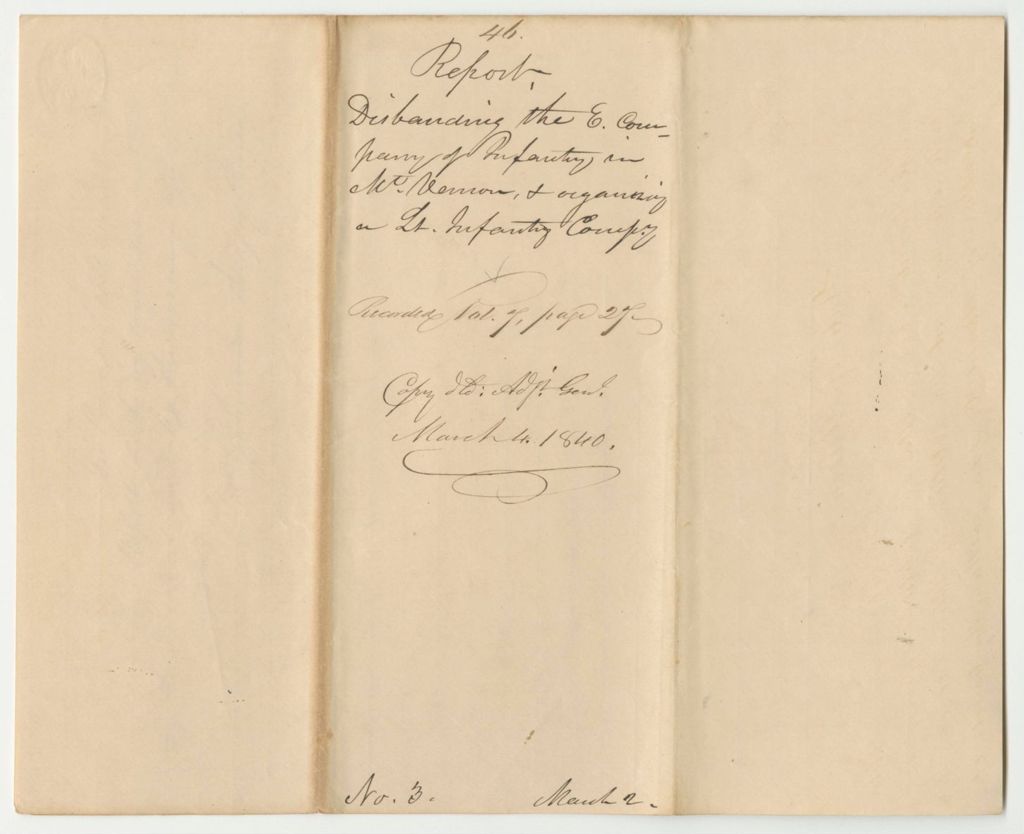 46.
Report.
Disbanding the E. Com-
pany of Infantry in
Mt. Vernon, & organizing
a Lt. Infantry Compy
Recorded Vol. 7, page 27
Copy dld: Adjt. Genl.
March 4. 1840.
No. 3. March 2.